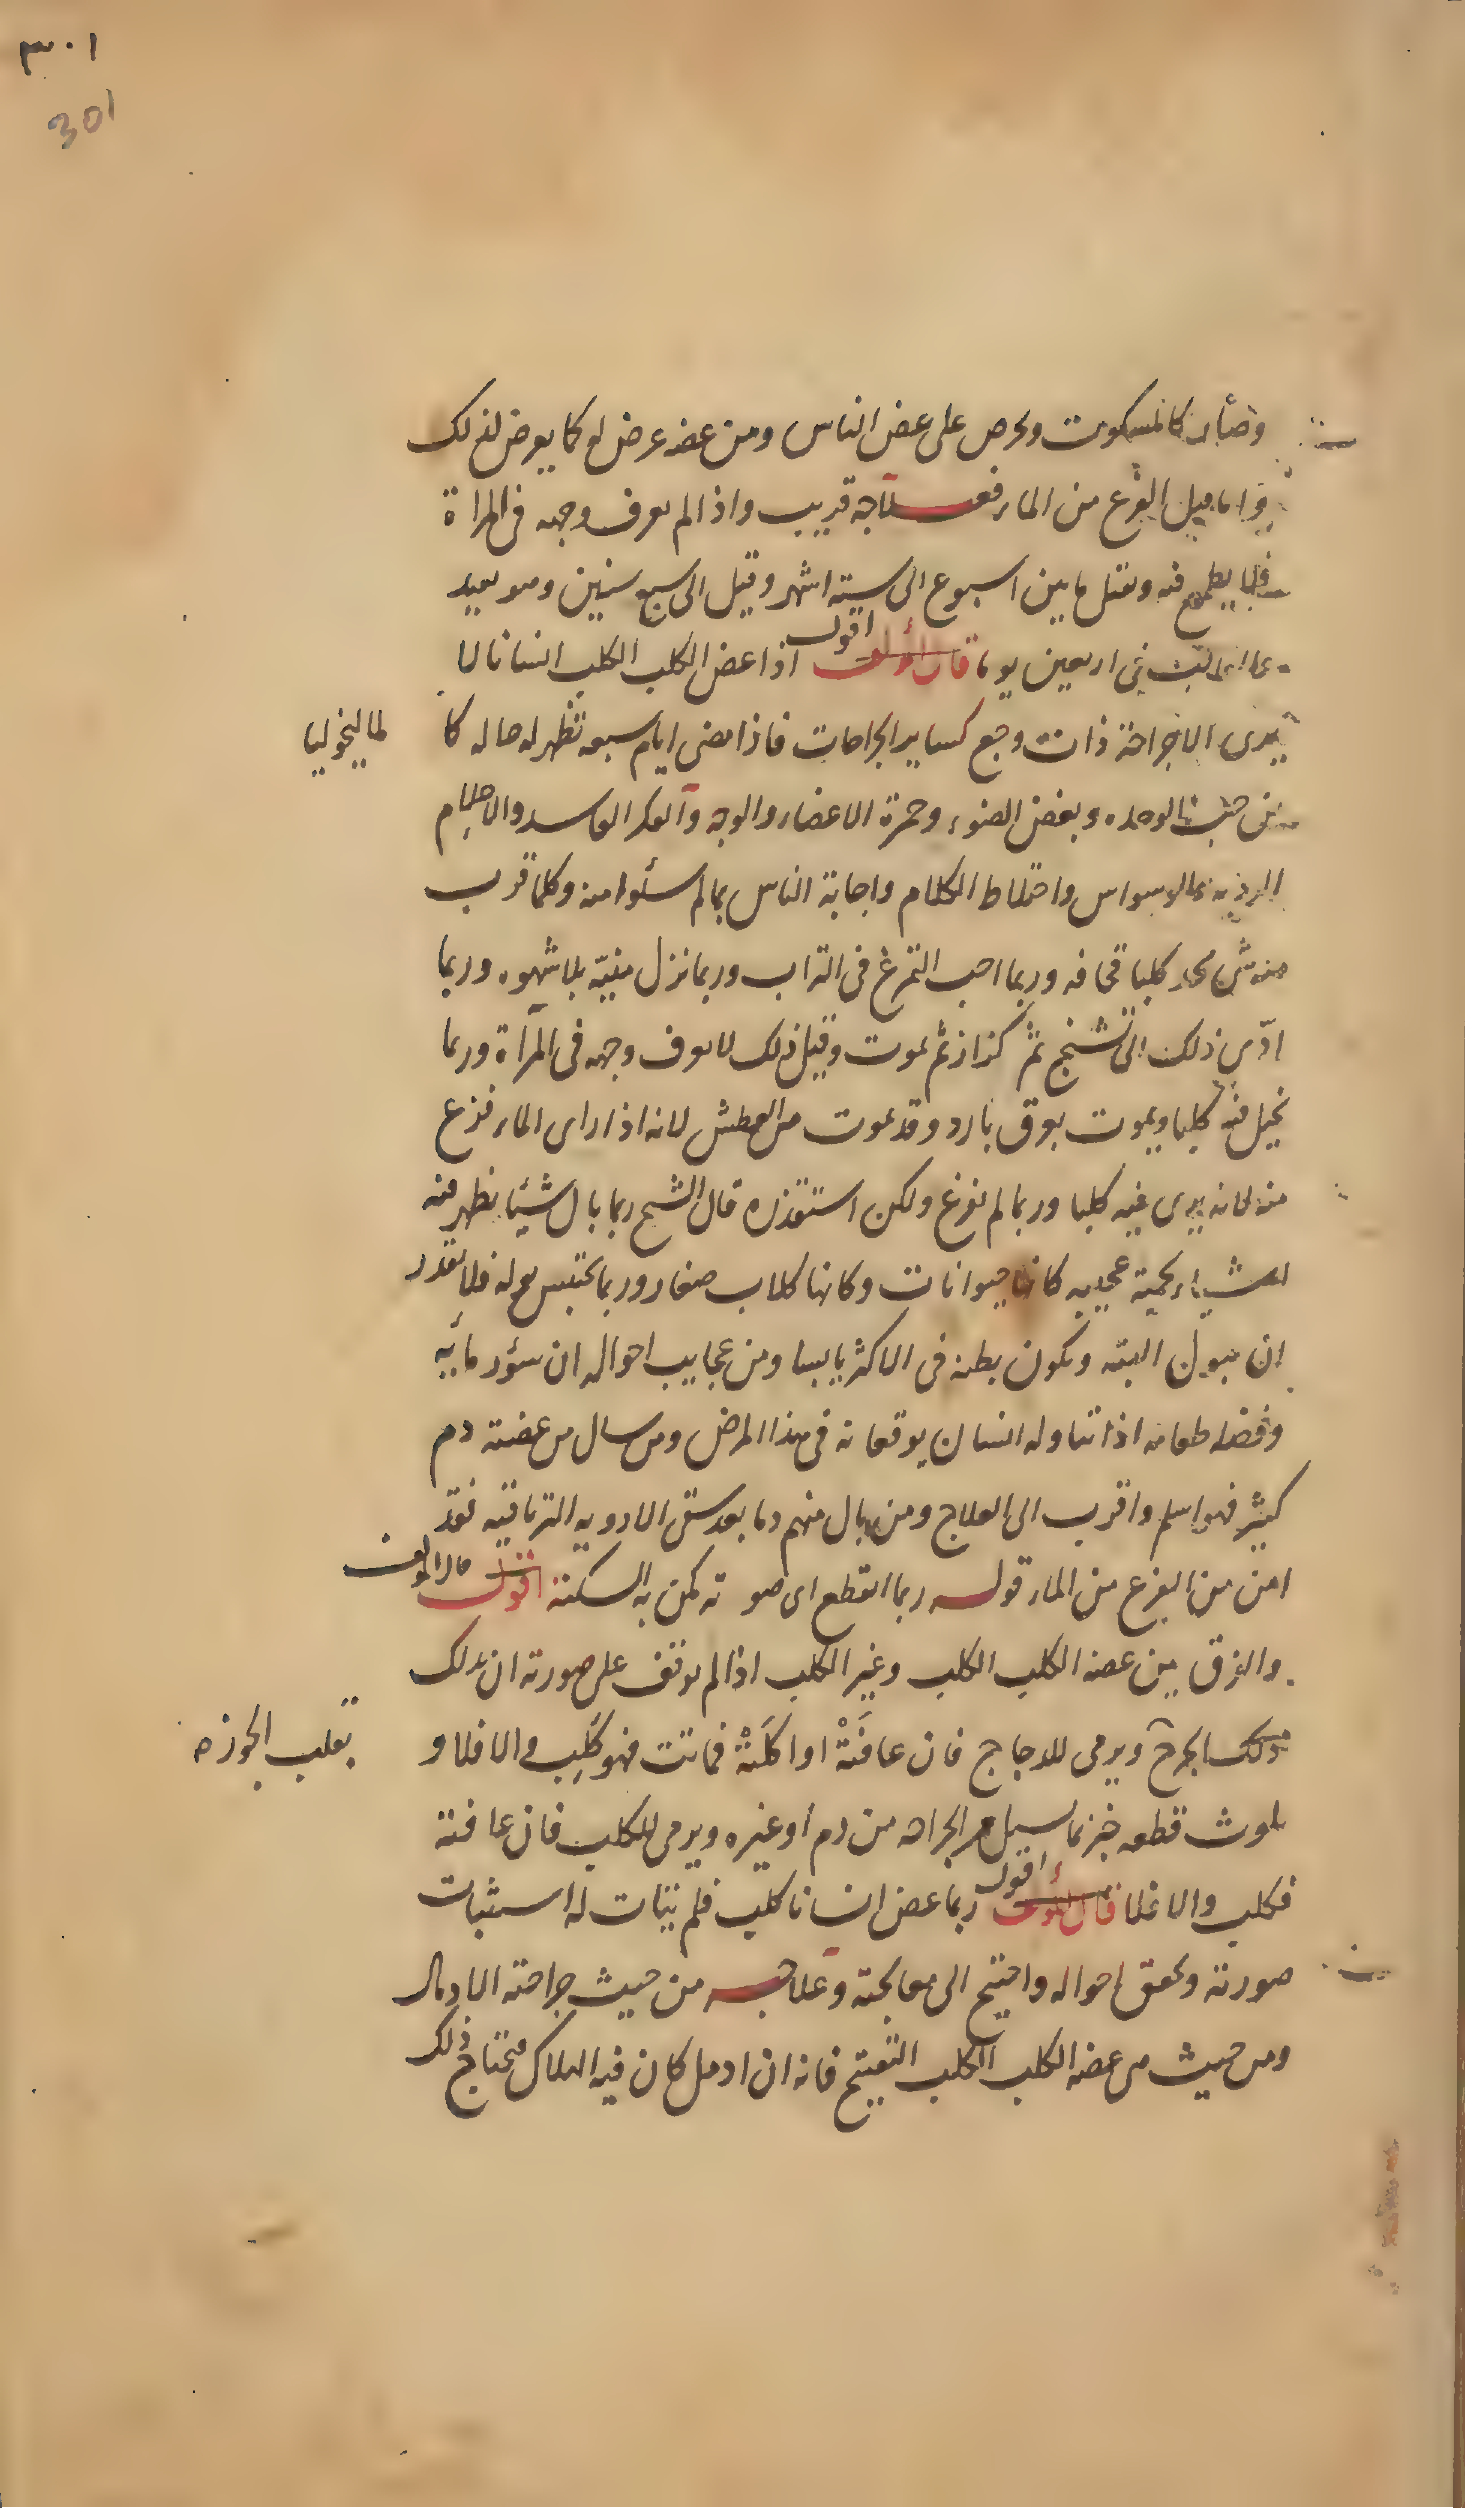 ٣٠١
301
وصار كالمسكوت وحرص على عض الناس ومن عضه عرض له كما يعرض لذلك
واما قبل الفزع من الماء فعلاجه قريب واذا لم يعرف وجهه فى المراة
فلا يطمع فيه ويقتل ما بين اسبوع الى ستة اشهر وقيل الى سبع سنين وهو بعيد
فى اربعين يوما قال المؤلف اقول اذا عض الكلب الكلب انسانا لا
يرى الا جراحة ذات وجع كساير الجراحات فاذا مضى ايام سبعه تظهر له حاله كا
لماليخوليا
من حب الوحده وبغض الضوء وحمرة الاعضاء والوجه والفكر الفاسد والاحلام
الرديه والوسواس واختلاط الكلام واجابة الناس بما لم يسئلوا منه وكلما قرب
منه شى تخيله كلبا فخافه وربما احب التمرغ فى التراب وربما نزل منيّه بلا شهوه وربما
ادّى ذلك الى تشنج ثم كزاز ثم يموت وقبل ذلك لا يعرف وجهه فى المرآة وربما
تخيل فيه كلبا ويموت بعرق بارد وقد يموت من العطش لانه اذا راى الماء فزع
منه لانه يرى فيه كلبا وربما لم يفزع ولكن استقذره قال الشيخ ربما بال شيئا يظهر فيه
اشياء لحمية عجيبه كانها حيوانات وكانها كلاب صغار وربما يحتبس بوله فلا يقدر
ان يبول البته ويكون بطنه فى الاكثر يابسا ومن عجايب احواله ان سؤر مائه
وفضله طعامه اذا تناوله انسان يوقعانه فى هذا المرض ومن سال من عضته دم
كثير فهو اسلم واقرب الى العلاج ومن بال منهم دما بعد سقى الادويه الترياقيه فقد
امن من الفزع من الماء قوله ربما انقطع اى صوته كمن به السكتة اقول قال المؤلف
والفرق بين عضه الكلب الكلب وغير الكلب اذا لم يوقف على صورته ان يدلك
بقلب الجوزه
ذلك الجرح ويرمى للدجاج فان عافَتْهُ او اكلَتْهُ فماتت فهو كَلِب والا فلا و
يلوث قطعه خبز بما يسيل من الجراحه من دم او غيره ويرمى للكلب فان عافته
فكلب والا فلا قال المؤلف اقول ربما عض انسانا كلب فلم يتات له استثبات
صورته وتحقق احواله واحتيج الى معالجته وعلاجه من حيث جراحته الادمال
ومن حيث من عضه الكلب الكلب التقيح فانه ان ادمل كان فيه الهلاك فيحتاج ذلك